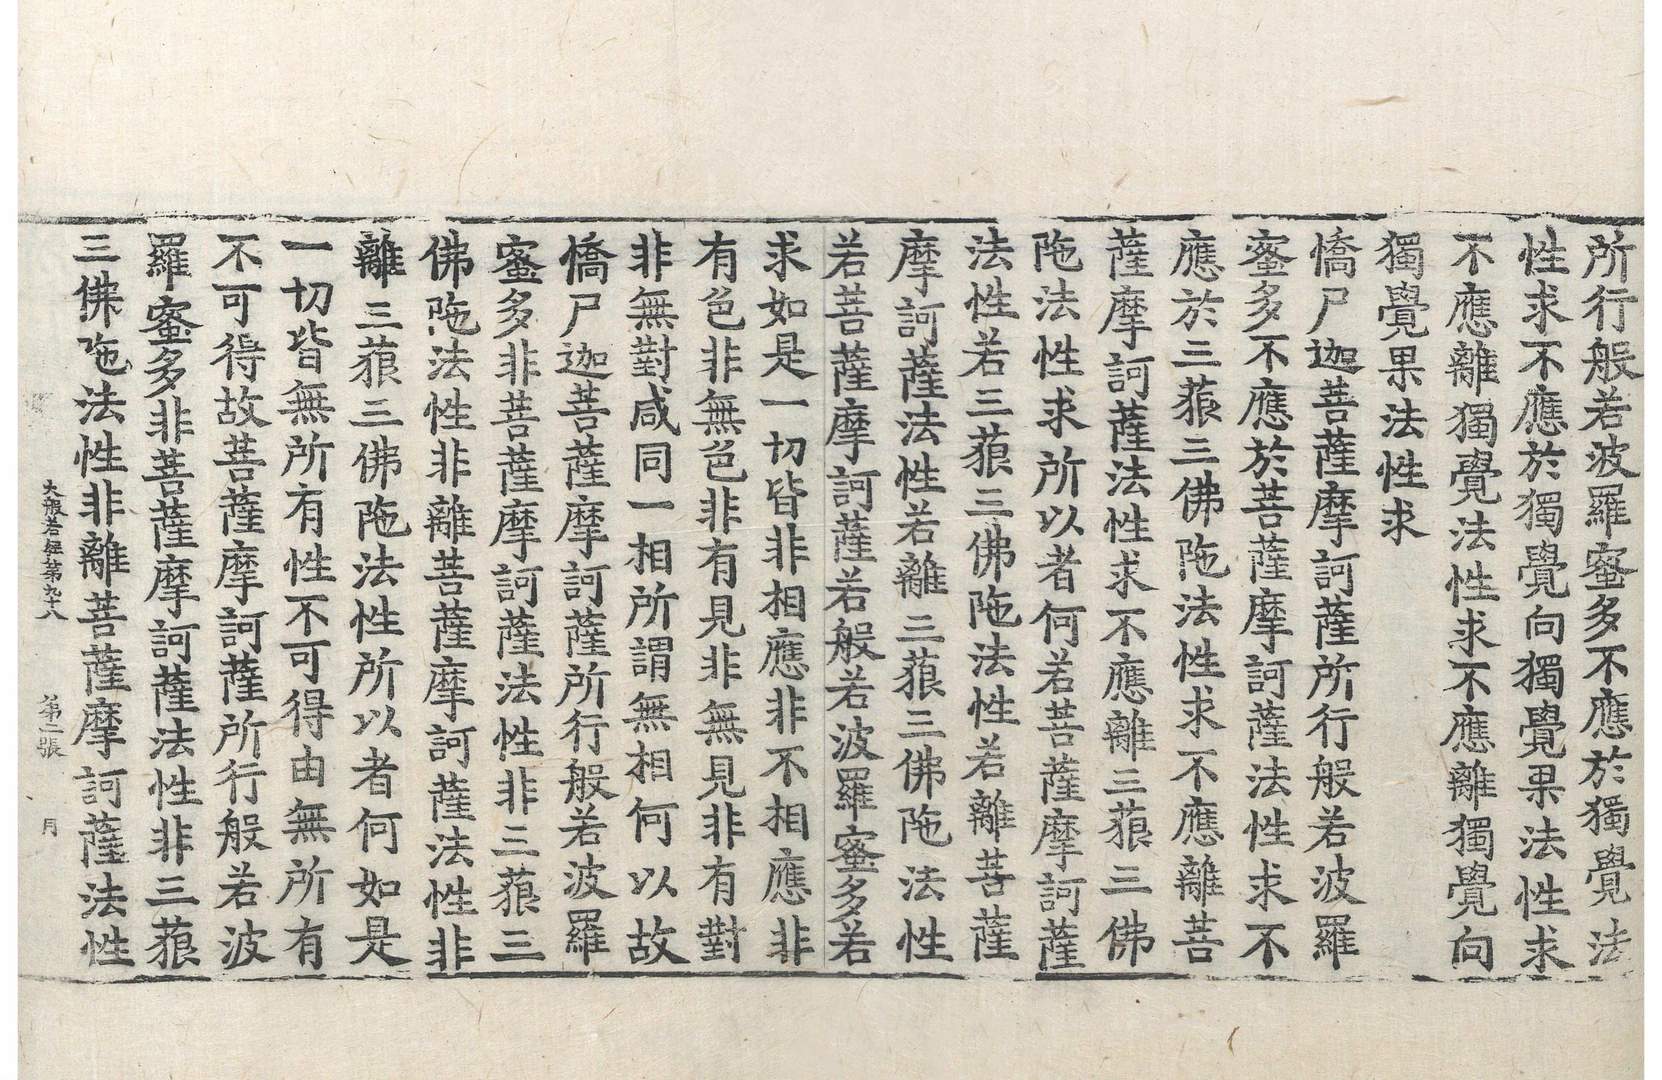 所行般若波羅蜜多不應於獨覺法
性求不應於獨覺向獨覺果法性求
不應離獨覺法性求不應離獨覺向
獨覺果法性求
憍尸迦菩薩摩訶薩所行般若波羅
蜜多不應於菩薩摩訶薩法性求不
應於三藐三佛陁法性求不應離菩
薩摩訶薩法性求不應離三藐三佛
陁法性求所以者何若菩薩摩訶薩
法性若三藐三佛陁法性若離菩薩
摩訶薩法性若離三藐三佛陁法性
若菩薩摩訶薩若般若波羅蜜多若
求如是一切皆非相應非不相應非
有色非無色非有見非無見非有對
非無對咸同一相所謂無相何以故
憍尸迦菩薩摩訶薩所行般若波羅
蜜多非菩薩摩訶薩法性非三藐三
佛陁法性非離菩薩摩訶薩法性非
離三藐三佛陁法性所以者何如是
一切皆無所有性不可得由無所有
不可得故菩薩摩訶薩所行般若波
羅蜜多非菩薩摩訶薩法性非三藐
三佛陁法性非離菩薩摩訶薩法性
大般若經第九十八 第二張 月